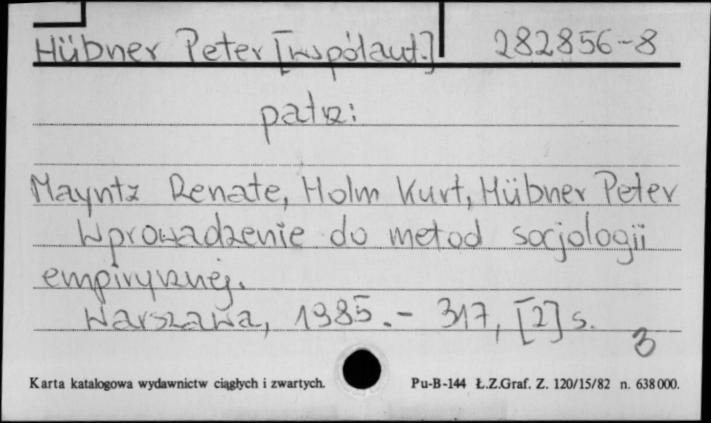 Hübner Peter [współaut.] 282856-8
patrz:
Mayntz Renate, Holm Kurt, Hübner Peter
Wprowadzenie do metod socjologii
empirycznej.
Warszawa, 1985.- 317, [2] s.
3
Karta katalogowa wydawnictw ciągłych i zwartych. Pu-B-144 Ł.Z.Graf. Z. 120/15/82 n. 638000.